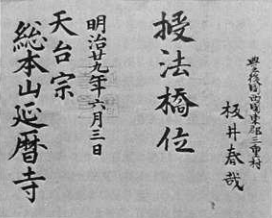 豊後国西国東郡三重村
板井春哉
授法橋位
明治廿九年六月三日
天台宗
総本山延暦寺